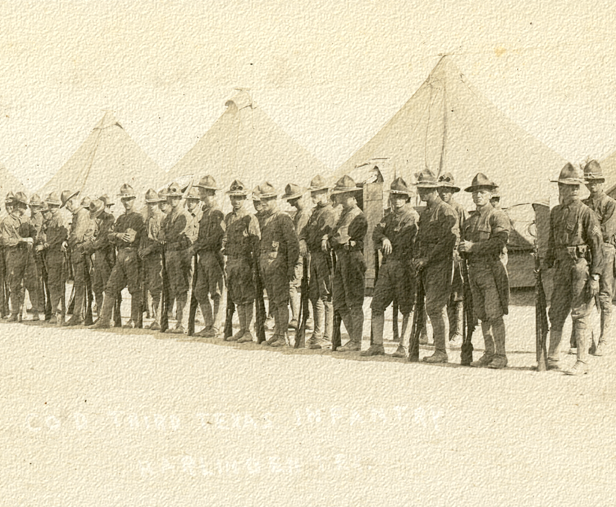 CO D THIRD TEXAS INFANTRY
HARLINGEN